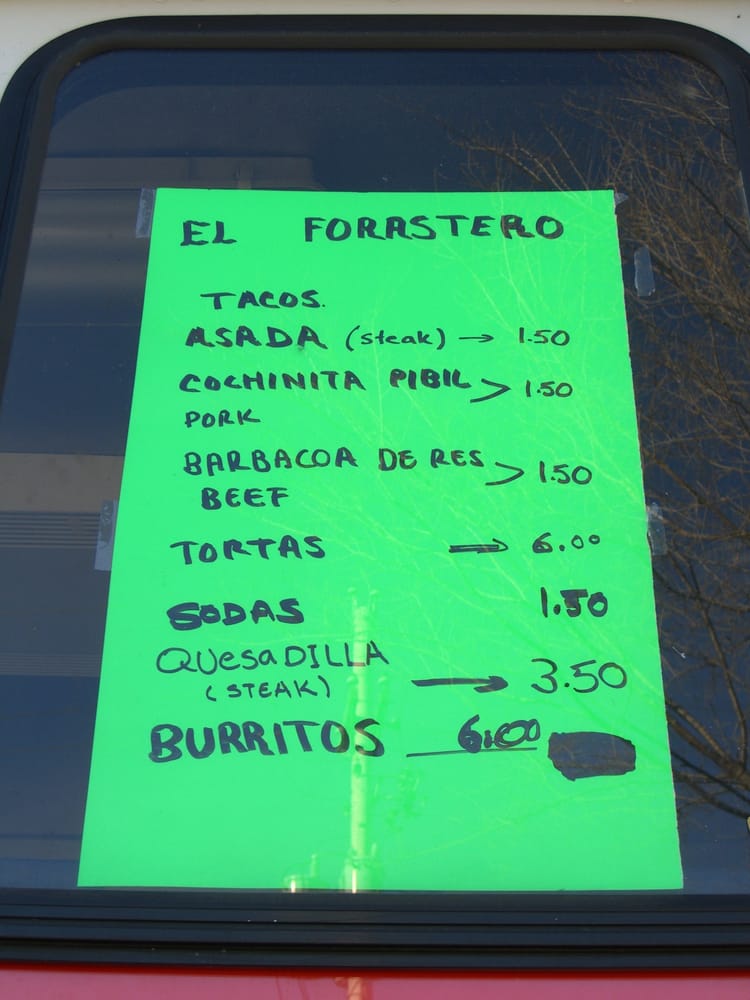 EL FORASTERO
TACOS.
ASADA (steak) → 1.50
COCHINITA PIBIL > 1.50
PORK
BARBACOA DE RES > 1.50
BEEF
TORTAS → 6.00
SODAS 1.50
QUesaDILLA → 3.50
(STEAK)
BURRITOS 6.00